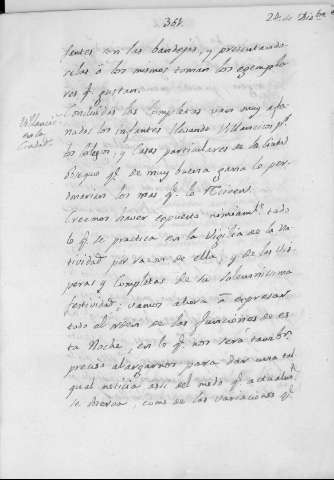 361.
24 de Dizbre
sentes en las bandejas, y presentando
selas á los mismos toman los exempla
res q.e gustan.
Villancicos
en la
Ciudad.
Concluidas las Completas van muy afa
nados los infantes llevando Villancicos p.r
los Colegios, y Casas particulares de la Ciudad
porque q.e de muy buena gana lo per
donarian los mas q.e lo
Creemos haver expuesto todo
lo q.e se practica en la Vigilia de la Na
tividad por razon de ella, y de las Vis
peras y Completas de su solemnissima
festividad; vamos ahora á expresar
todo el orden de las funciones de es
ta Noche, en lo q.e nos sera tambn
preciso alargarnos para dar una tal
qual noticia asi del modo q.e actualmte
se observa, como de las variaciones q.e